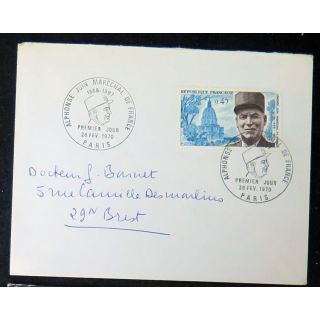 ALPHONSE JUIN MARECHAL DE FRANCE
1888-1967
PREMIER JOUR
28 FEV. 1970
PARIS
REPUBLIQUE FRANÇAISE
0,45
ALPHONSE DE FRANCE
PREMIER JOUR
28 FEV. 1970
PARIS
Docteur J. Barnet
5 rue Camille Desmoulins
29N Brest